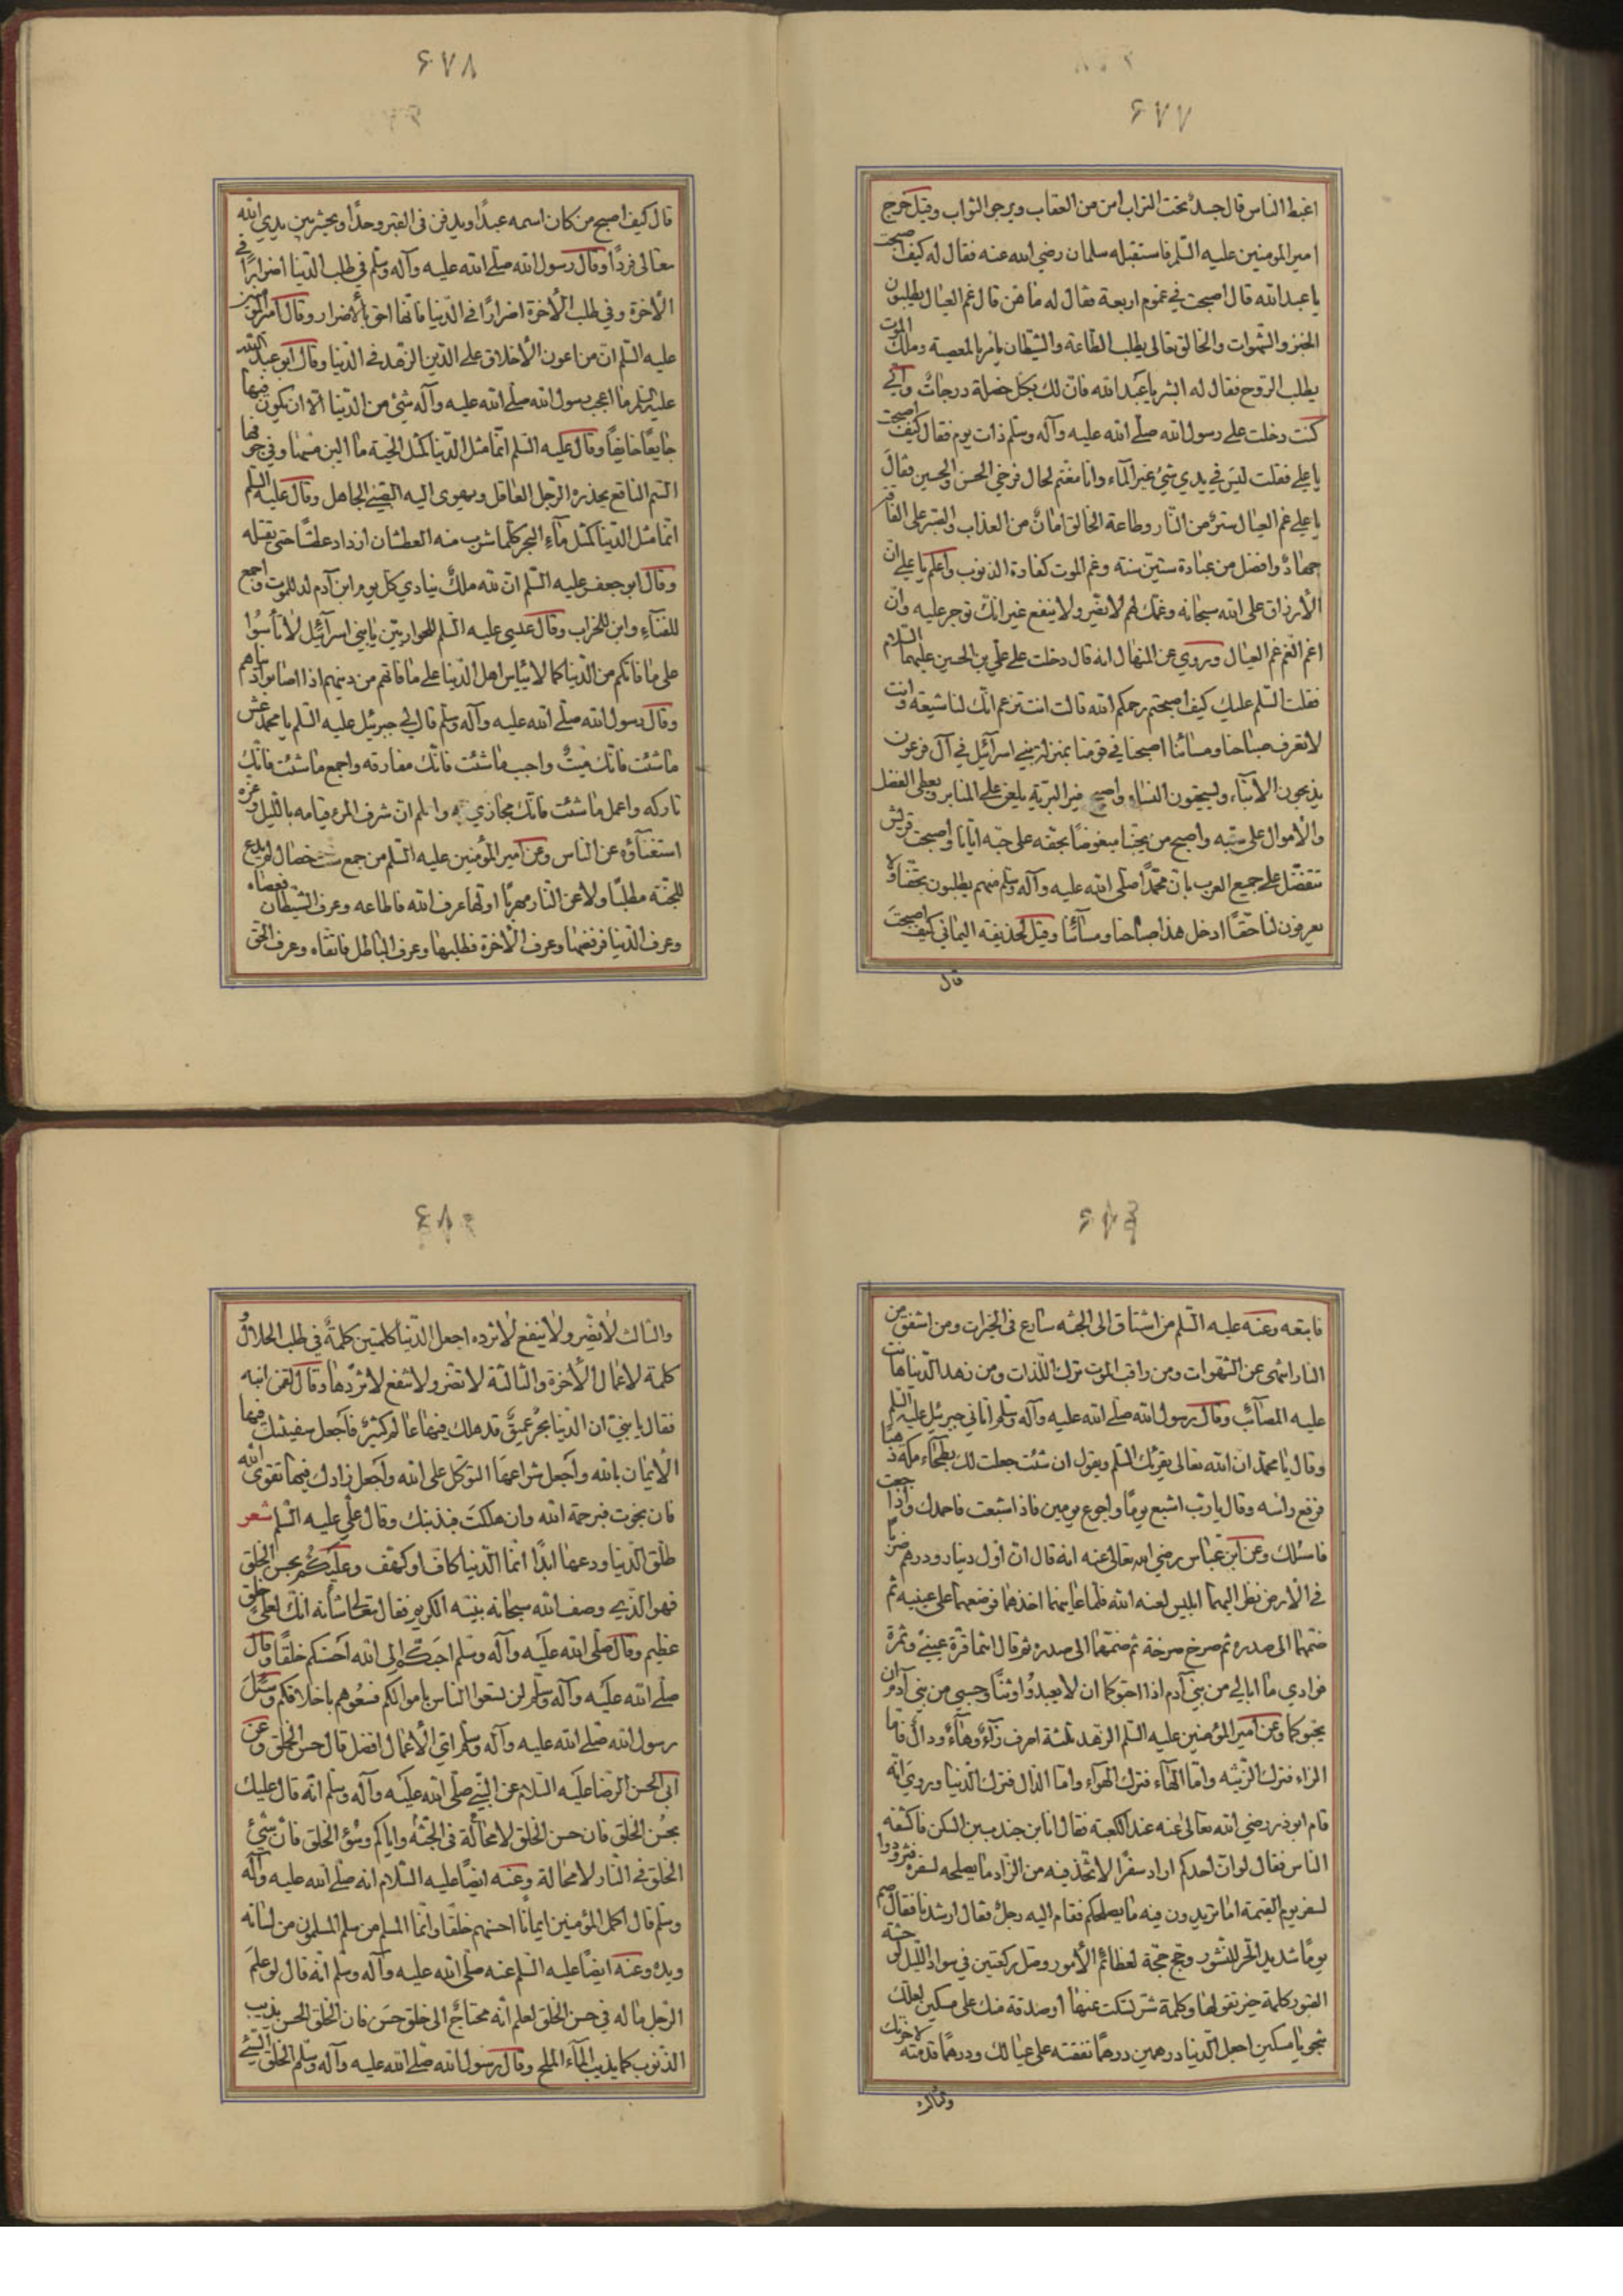 ۶۷۷
اغبط الناس قال جسد تحت التراب امن من العقاب ويرجى الثواب وقيل خرج
امير المومنين عليه السلم فاستقبله سلمان رضي الله عنه فقال له كيف اصبحت
يا عبد الله قال اصبحت في غموم اربعة فقال له ما هن قال غم العيال يطلبون
الخبز والشهوات والخالق تعالى يطلب الطاعة والشيطان يأمر بالمعصية وملك الموت
يطلب الروح فقال له ابشر يا عبد الله فان لك بكل خصلة درجات واني
كنت دخلت على رسول الله صلى الله عليه وآله وسلم ذات يوم فقال كيف اصبحت
يا علي فقلت ليس في يدي شيء غير الماء وانا مغتم لحال فرخي الحسن والحسين فقال
يا علي غم العيال ستر من النار وطاعة الخالق امان من العذاب والصبر على الفاقة
جهاد وافضل من عبادة ستين سنة وغم الموت كفارة الذنوب واعلم يا علي ان
الأرزاق على الله سبحانه وغمك لهم لا يضر ولا ينفع غير انك توجر عليه وان
اغم الغم غم العيال وروي عن المنهال انه قال دخلت على علي بن الحسين عليهما السلام
فقلت السلم عليك كيف اصبحتم رحمكم الله قالت انت تزعم انك لنا شيعة وانت
لا تعرف صباحنا ومسائنا اصبحنا في قومنا بمنزلة بني اسرآئيل في آل فرعون
يذبحون الأبناء ويستحيون النساء واصبح خير البرية يلعن على المنابر ويعطى الفضل
والأموال على سبه واصبح من يحبنا مبغوضا بحقه على حبه ايانا واصبحت قريش
تتفضل على جميع العرب بان محمدا صلى الله عليه وآله وسلم منهم يطلبون بحقنا ولا
يعرفون لنا حقا ادخل هذا صباحنا ومسائنا وقيل لحذيفة اليماني كيف اصبحت
قال
۶۷۸
قال كيف اصبح من كان اسمه عبدا ويدفن في القبر وحدا ويحشر بين يدي الله
تعالى فردا وقال رسول الله صلى الله عليه وآله وسلم في طلب الدنيا اضرارا في
الأخرة وفي طلب الأخرة اضرارا في الدنيا فانها احق بالأضرار وقال امير المؤمنين
عليه السلم ان من اعون الأخلاق على الدين الزهد في الدنيا وقال ابو عبد الله
عليه السلم ما اعجب رسول الله صلى الله عليه وآله شيء من الدنيا الا ان يكون فيها
جايعا خايفا وقال عليه السلم انما مثل الدنيا كمثل الحية ما الين مسها وفي جوفها
السم الناقع يحذره الرجل العاقل ويهوى اليه الصبي الجاهل وقال عليه السلم
انما مثل الدنيا كمثل مآء البحر كلما شرب منه العطشان ازداد عطشا حتى يقتله
وقال ابو جعفر عليه السلم ان لله ملك ينادي كل يوم ابن آدم لد للموت واجمع
للفناء وابن للخراب وقال عيسى عليه السلم للحواريين يا بني اسرآئيل لا تأسوا
على ما فاتكم من الدنيا كما لا ييأس اهل الدنيا على ما فاتهم من دينهم اذا اصابوا دنياهم
وقال رسول الله صلى الله عليه وآله وسلم قال لي جبرئيل عليه السلم يا محمد عش
ما شئت فانك ميت واحبب ما شئت فانك مفارقه واجمع ما شئت فانك
تاركه واعمل ما شئت فانك مجازي به واعلم ان شرف المرء قيامه بالليل وعزه
استغنآؤه عن الناس وعن امير المؤمنين عليه السلم من جمع ست خصال لم يدع
للجنة مطلبا ولا عن النار مهربا اولها عرف الله فاطاعه وعرف الشيطان فعصاه
وعرف الدنيا فرفضها وعرف الأخرة فطلبها وعرف الباطل فاتقاه وعرف الحق
فابتعه وعنه عليه السلم من اشتاق الى الجنة سارع في الخيرات ومن اشفق من
النار انتهى عن الشهوات ومن راقب الموت ترك اللذات ومن زهد الدنيا هانت
عليه المصآئب وقال رسول الله صلى الله عليه وآله وسلم أتاني جبرئيل عليه السلم
وقال يا محمد ان الله تعالى يقرئك السلم ويقول ان شئت جعلت لك بطحاء مكة ذهبا
فرفع رأسه وقال يا رب اشبع يوما واجوع يومين فاذا اشبعت فاحمدك واذا جعت
فاسئلك وعن ابن عباس رضي الله تعالى عنه انه قال ان اول دينار ودرهم ضربا
في الأرض نظر اليهما ابليس لعنه الله فلما عاينهما اخذهما فوضعهما على عينيه ثم
ضمهما الى صدره ثم صرخ صرخة ثم ضمهما الى صدره ثم قال انتما قرة عيني وثمرة
فوادي ما ابالي من بني آدم اذا احبوكما ان لا يعبدوا وثنا وحسبي من بني آدم ان
يحبوكما وعن امير المؤمنين عليه السلم الزهد ثلثة احرف زآء وهآء ودال فاما
الزاء فترك الزينة واما الهاء فترك الهواء واما الدال فترك الدنيا وروي انه
قام ابوذر رضي الله تعالى عنه عند الكعبة فقال انا بن جندب بن السكن فاكتنفه
الناس فقال لو ان احدكم اراد سفرا لا تخذ فيه من الزاد ما يصلحه لسفره فتزودوا
لسفر يوم القيمة اما تريدون فيه ما يصلحكم فقام اليه رجل فقال ارشدنا فقال صم
يوما شديد الحر للنشور وحج حجة لعظائم الأمور وصل ركعتين في سواد الليل لوحشة
القبور كلمة خير تقولها وكلمة شر تسكت عنها أو صدقة منك على مسكين لعلك
تنجو يا مسكين اجعل الدنيا درهمين درهما تنفقته على عيالك ودرهما قدمته لآخرتك
والثالث
والثالث لا يضر ولا ينفع لا ترده اجعل الدنيا كلمتين كلمة في طلب الحلال و
كلمة لأعمال الأخرة والثالثة لا تضر ولا تنفع لا تردها وقال لقمن ابنه
فقال يا بني ان الدنيا بحر عميق قد هلك فيها عالم كثير فاجعل سفينتك فيها
الأيمان بالله واجعل شراعها التوكل على الله واجعل زادك فيها تقوى الله
فان نجوت فبرحمة الله وان هلكت فبذنبك وقال علي عليه السلم شعر
طلق الدنيا ودعها ابدا انما الدنيا كاف او كهف وعليكم بحسن الخلق
فهو الذي وصف الله سبحانه بنيته الكريم فقال تعالى شأنه انك لعلى خلق
عظيم وقال صلى الله عليه وآله وسلم احبكم الى الله احسنكم خلقا وقال
صلى الله عليه وآله وسلم لن تسعوا الناس باموالكم فسعوهم باخلاقكم وسئل
رسول الله صلى الله عليه وآله وسلم اي الأعمال افضل قال حسن الخلق وعن
ابي الحسن الرضا عليه السلام عن النبي صلى الله عليه وآله وسلم انه قال عليك
بحسن الخلق فان حسن الخلق لا محالة في الجنة واياكم وسوء الخلق فان سيئ
الخلق في النار لا محالة وعنه ايضا عليه السلام انه صلى الله عليه وآله
وسلم قال اكمل المؤمنين ايمانا احسنهم خلقا وانما المسلم من سلم المسلمون من لسانه
ويده وعنه ايضا عليه السلم عنه صلى الله عليه وآله وسلم انه قال لو علم
الرجل ما له في حسن الخلق لعلم انه محتاج الى خلق حسن فان الخلق الحسن يذيب
الذنوب كما يذيب المآء الملح وقال رسول الله صلى الله عليه وآله وسلم الخلق السيئ